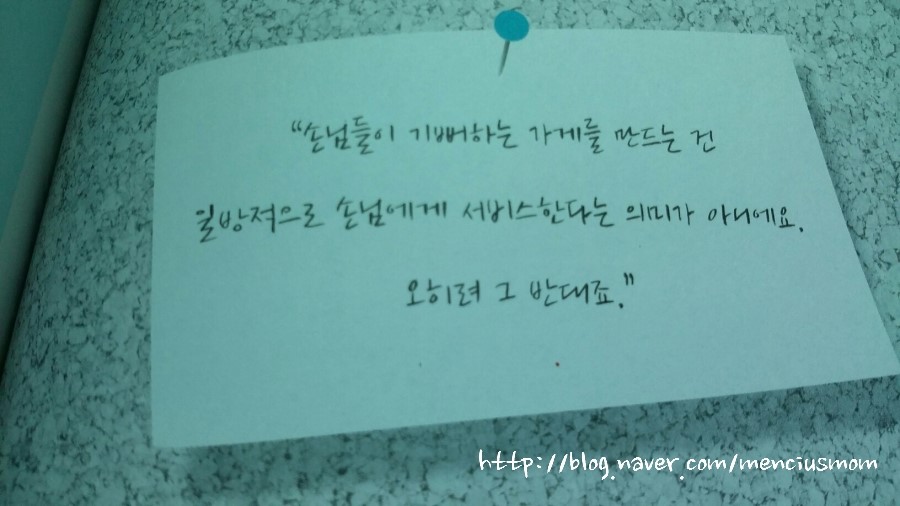 “손님들이 기뻐하는 가게를 만드는 건
일방적으로 손님에게 서비스한다는 의미가 아니에요.
오히려 그 반대죠.”
http://blog.naver.com/menciusmom